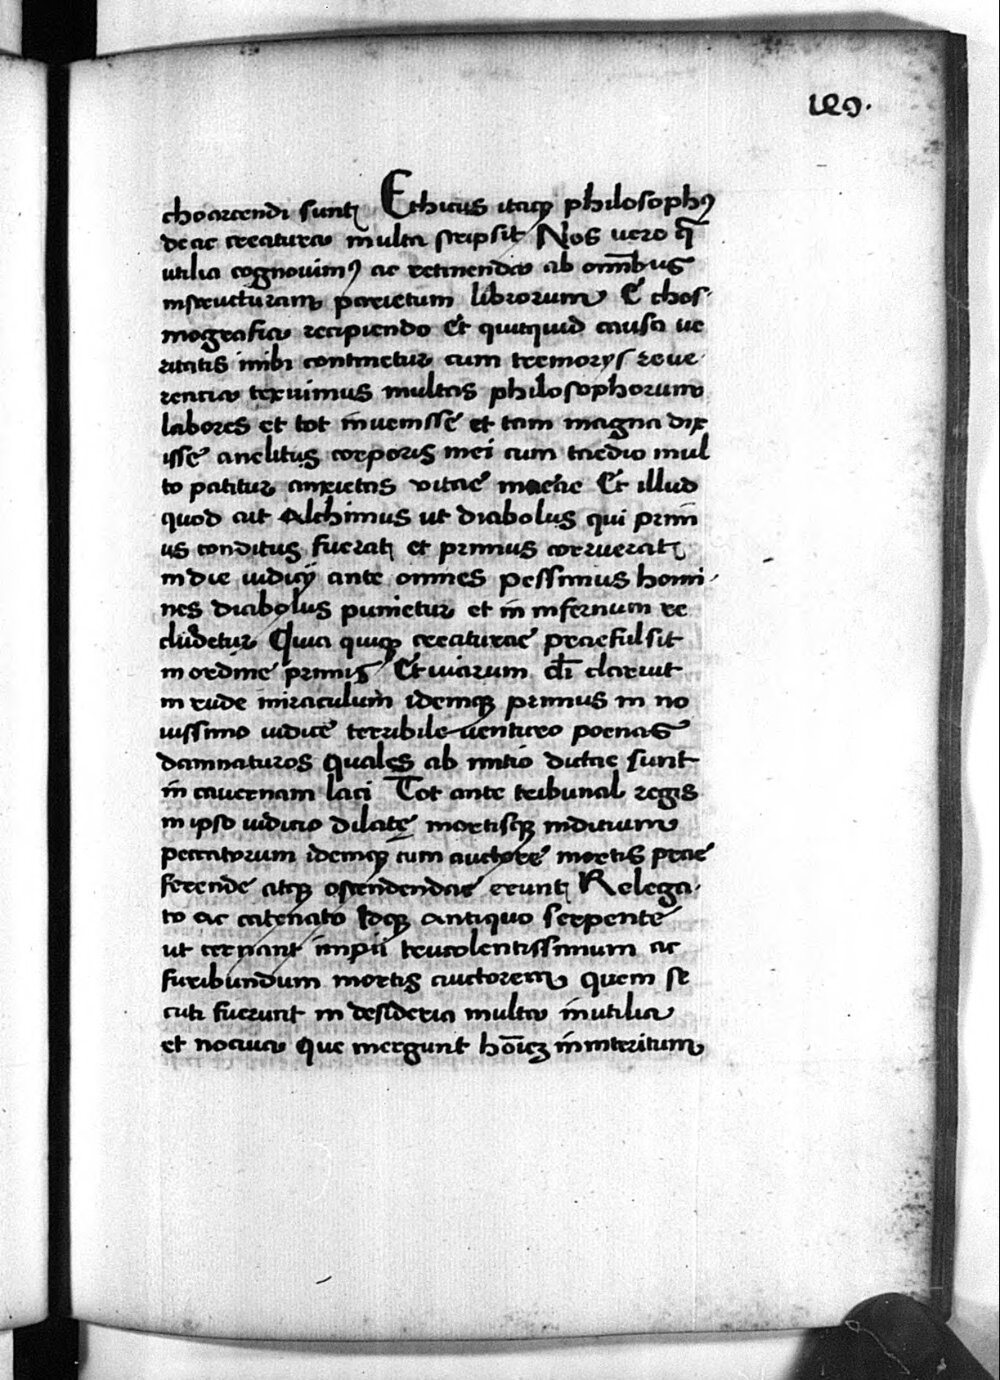 129.
choarcendi sunt Ethicus itaq philosophꝰ
de ac creatura multa scripsit Nos vero q̄
utilia cognovimꝰ ac retinenda ab om̄ibus
instructuram parietum librorum E chos
mografia recipiendo Et quicquid causa ve
ritatis inibi continetur cum tremorys reve
rentia texuimus multas philosophorum
labores et tot invenisse et tam magna dix
isse anelitus corporis mei cum taedio mul
to patitur anxietas vitae meae Et illud
quod ait Alchimus ut diabolus qui prim
us conditus fuerat et primus corruerat
in die iudicij ante omnes pessimus homi
nes diabolus punietur et in infernum re
cludetur Quia quiqꝫ creaturae praefulsit
in ordine primis Et viarum di claruit
in rude miraculum idemqꝫ primus in no
vissimo iudice terribile venturo poenas
damnaturos Quales ab initio dictae sunt
in cavernam laci Tot ante tribunal regis
in ipso iudicio dilate mortisqꝫ inditium
peccatorum idemqꝫ cum auctore mortis prae
ferende atqꝫ ostendendae erunt Relega
to ac catenato Idqꝫ antiquo serpente
ut cernant impii truculentissimum ac
furibundum mortis auctorem quem se
cuti fuerunt in desideria multa inutilia
et nociva Que mergunt hoīeꝫ in interitum